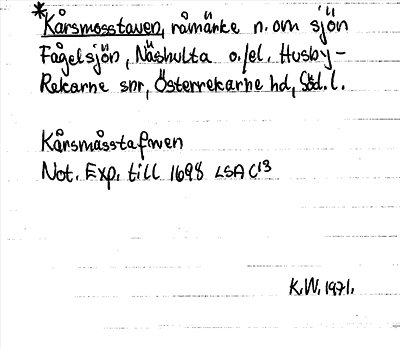 *Kårsmosstaven, råmärke n.om sjön
Fågelsjön, Näshulta o./el. Husby-
Rekarne snr, Österrekarne hd, Söd.l.
Kårsmåsstafwen
Not. Exp. till 1698 LSA C13
K.W. 1971.